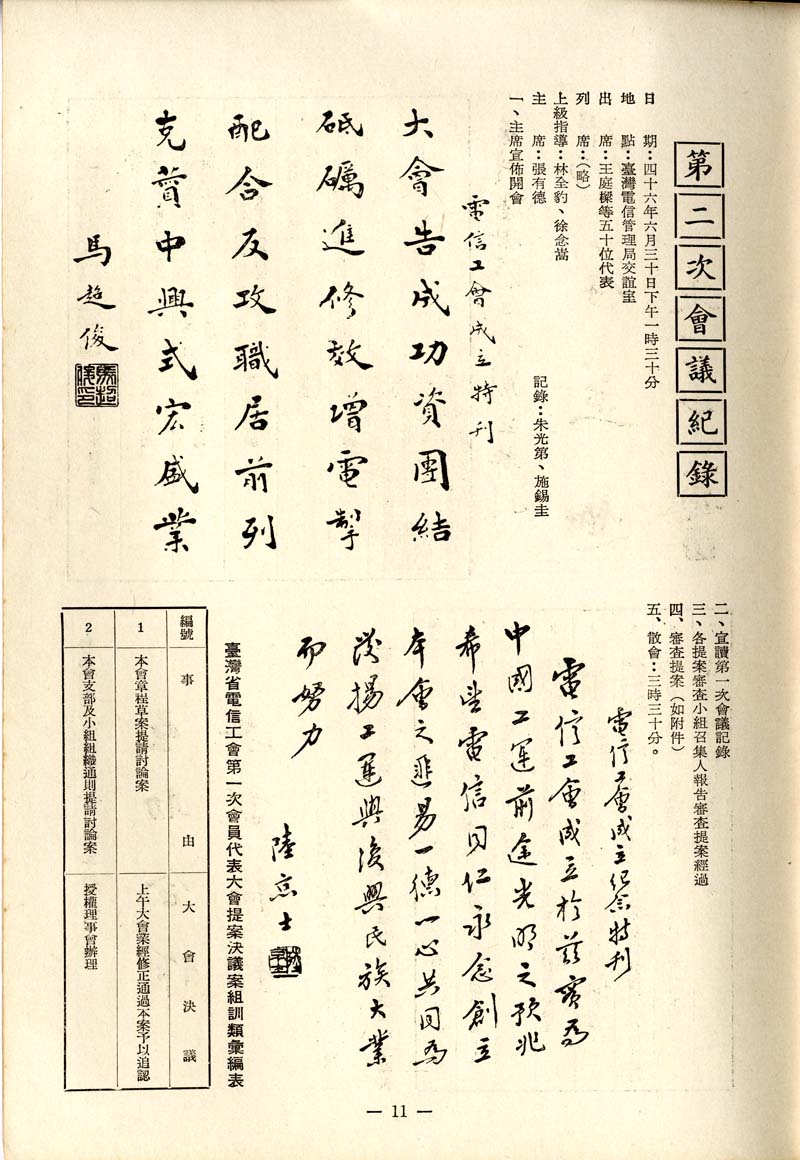 第二次會議紀錄
日　期：四十六年六月三十日下午一時三十分
地　點：臺灣電信管理局交誼室
出　席：王庭樑等五十位代表
列　席：（略）
上級指導：林全豹、徐念嵩
主　席：張有德　記錄：朱光第、施錫圭
一、主席宣佈開會
電信工會成立特刊
大會告成功資團結
砥礪進修效增電掣
配合反攻職居前列
克贊中興式宏盛業
馬超俊
馬超俊印
二、宣讀第一次會議記錄
三、各提案審查小組召集人報告審查提案經過
四、審查提案（如附件）
五、散會：三時三十分。
電信工會成立紀念特刊
電信工會成立於茲實為
中國工運前途光明之預兆
希望電信同仁永念創立
本會之匪易一德一心共同為
發揚工運與復興民族大業
而努力
陸京士
臺灣省電信工會第一次會員代表大會提案決議案組訓類彙編表
編號　事　由　大會決議
1　本會章程草案提請討論案　上午大會業經修正通過本案予以追認
2　本會支部及小組組織通則提請討論案　授權理事會辦理
— 11 —